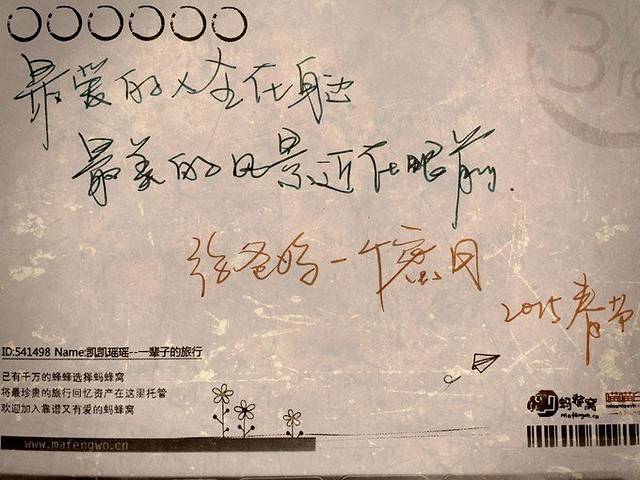 3
最爱的人坐在身边
最美的风景近在眼前.
给爸妈一个蜜月
2015春节
ID:541498 Name:凯凯瑶瑶--一辈子的旅行
已有千万的蜂蜂选择蚂蜂窝
将最珍贵的旅行回忆资产在这里托管
欢迎加入靠谱又有爱的蚂蜂窝
www.mafengwo.cn
蚂蜂窝
mafengwo.cn